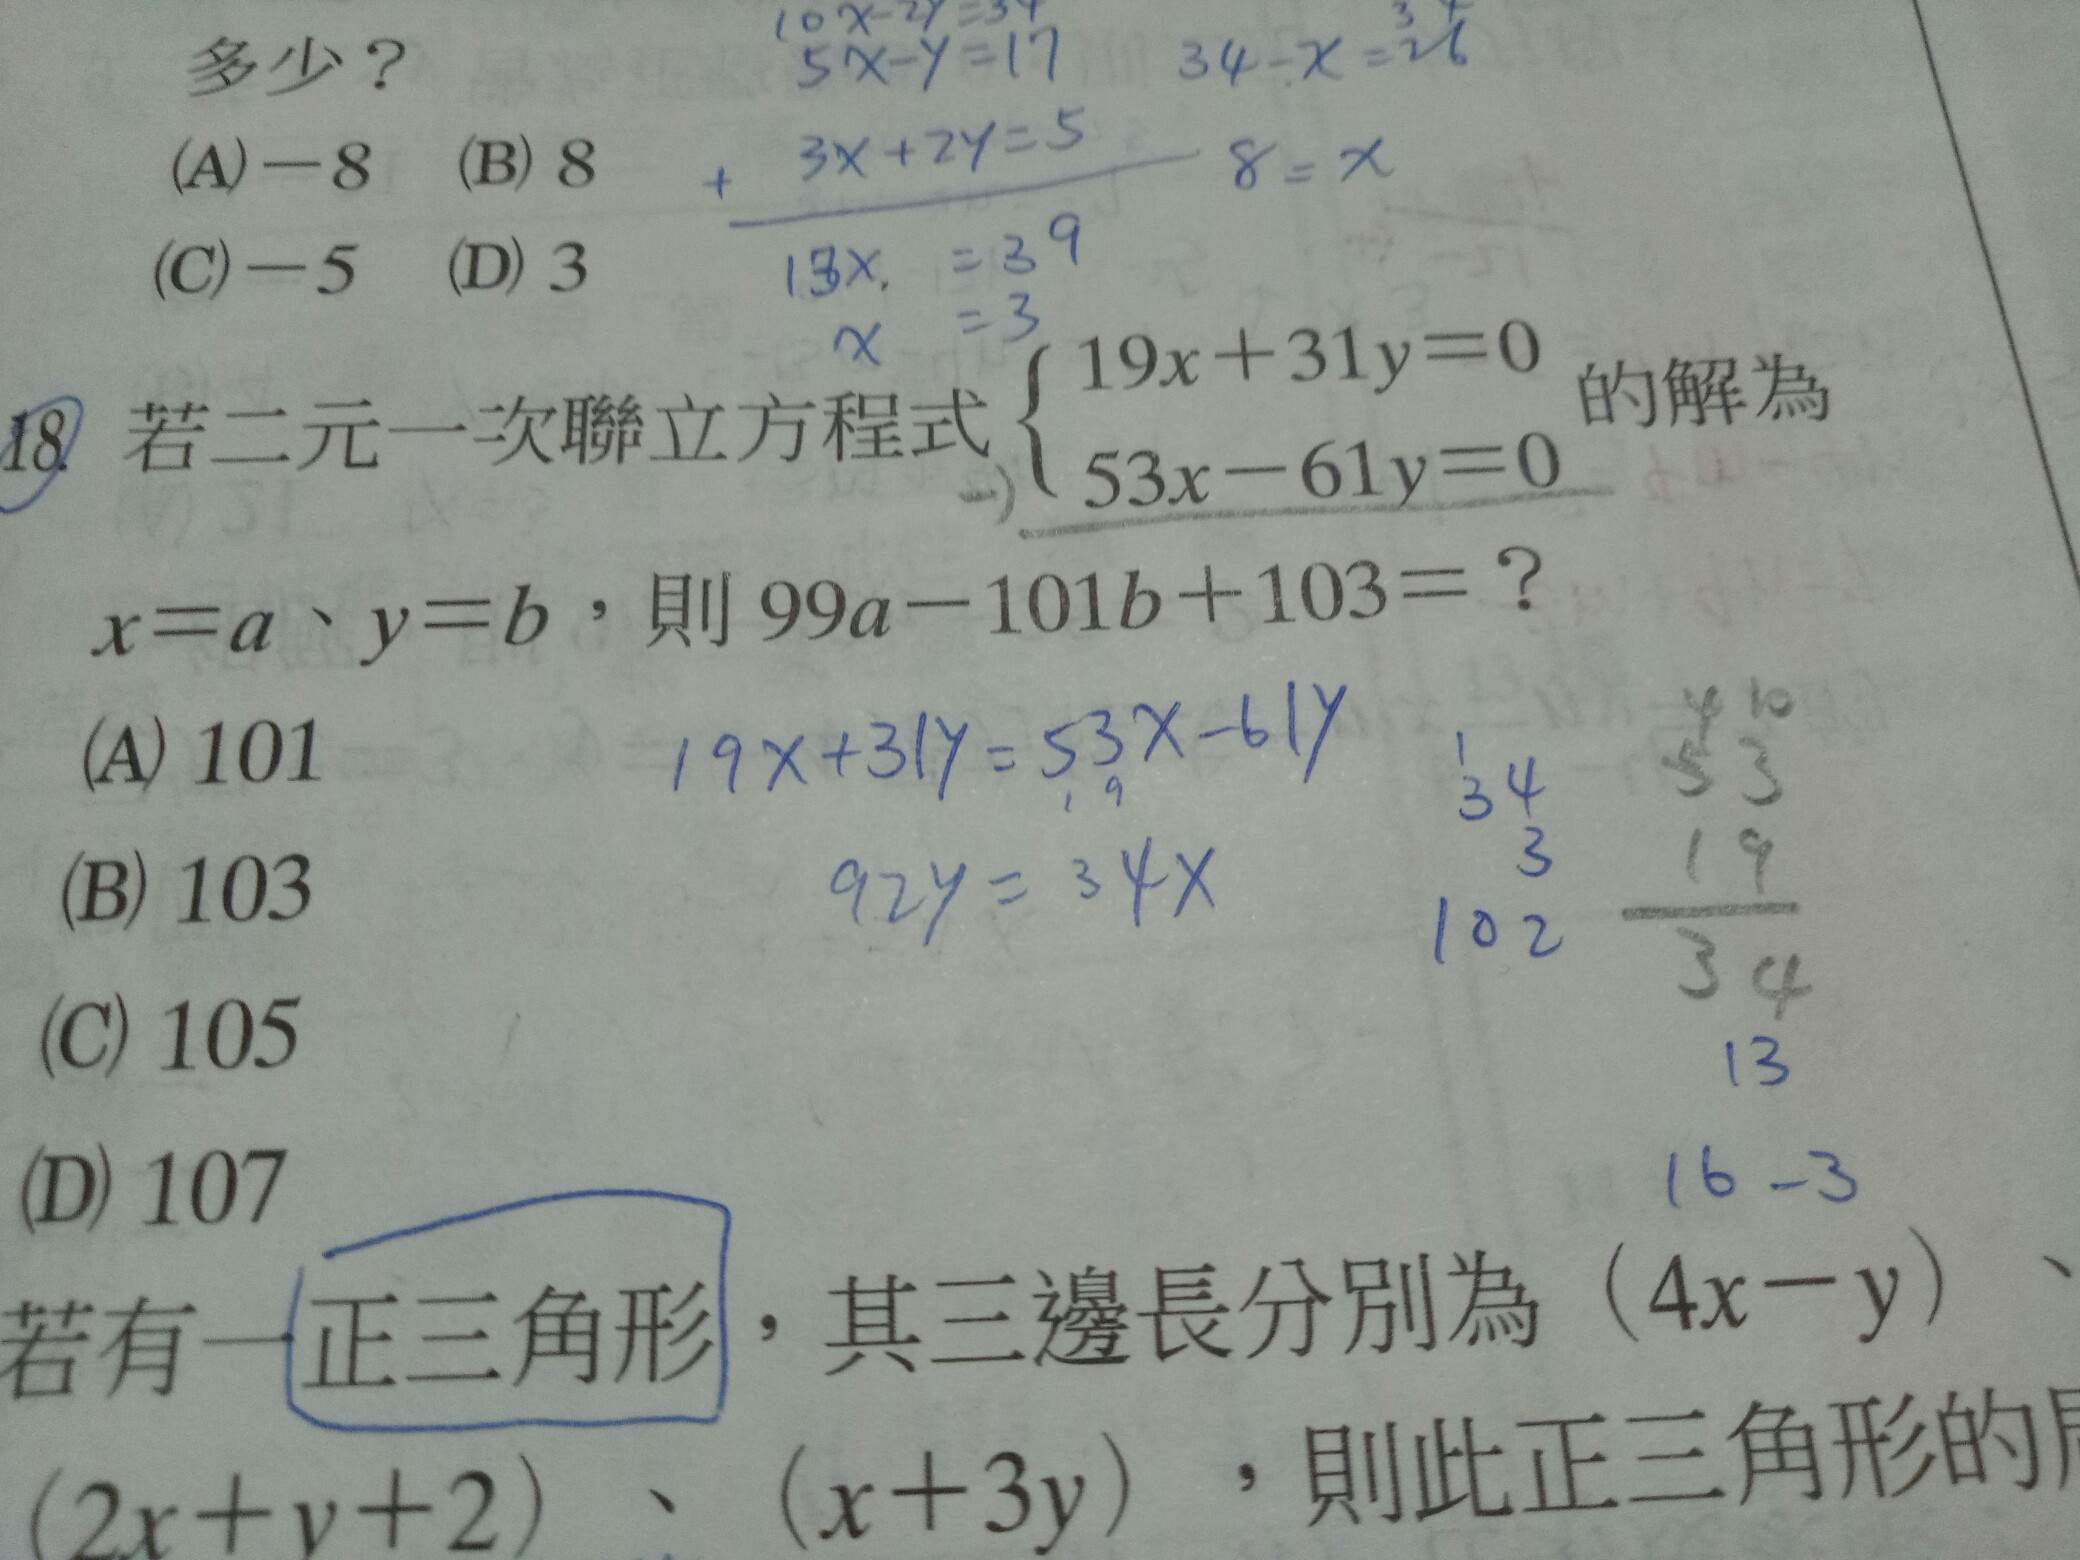 10x-2y=34
多少？ 5x-y=17 34-x=26
(A)-8 (B) 8 + 3x+2y=5 8=x
(C)-5 (D) 3 13x =39
x =3
18. 若二元一次聯立方程式 { 19x+31y=0 的解為
-) 53x-61y=0
x=a、y=b，則 99a-101b+103=？
(A) 101
19x+31y=53x-61y
19
92y=34x
1
34
3
102
4 10
53
19
34
13
16-3
(B) 103
(C) 105
(D) 107
若有一正三角形，其三邊長分別為（4x-y）、
（2x+y+2）、（x+3y），則此正三角形的